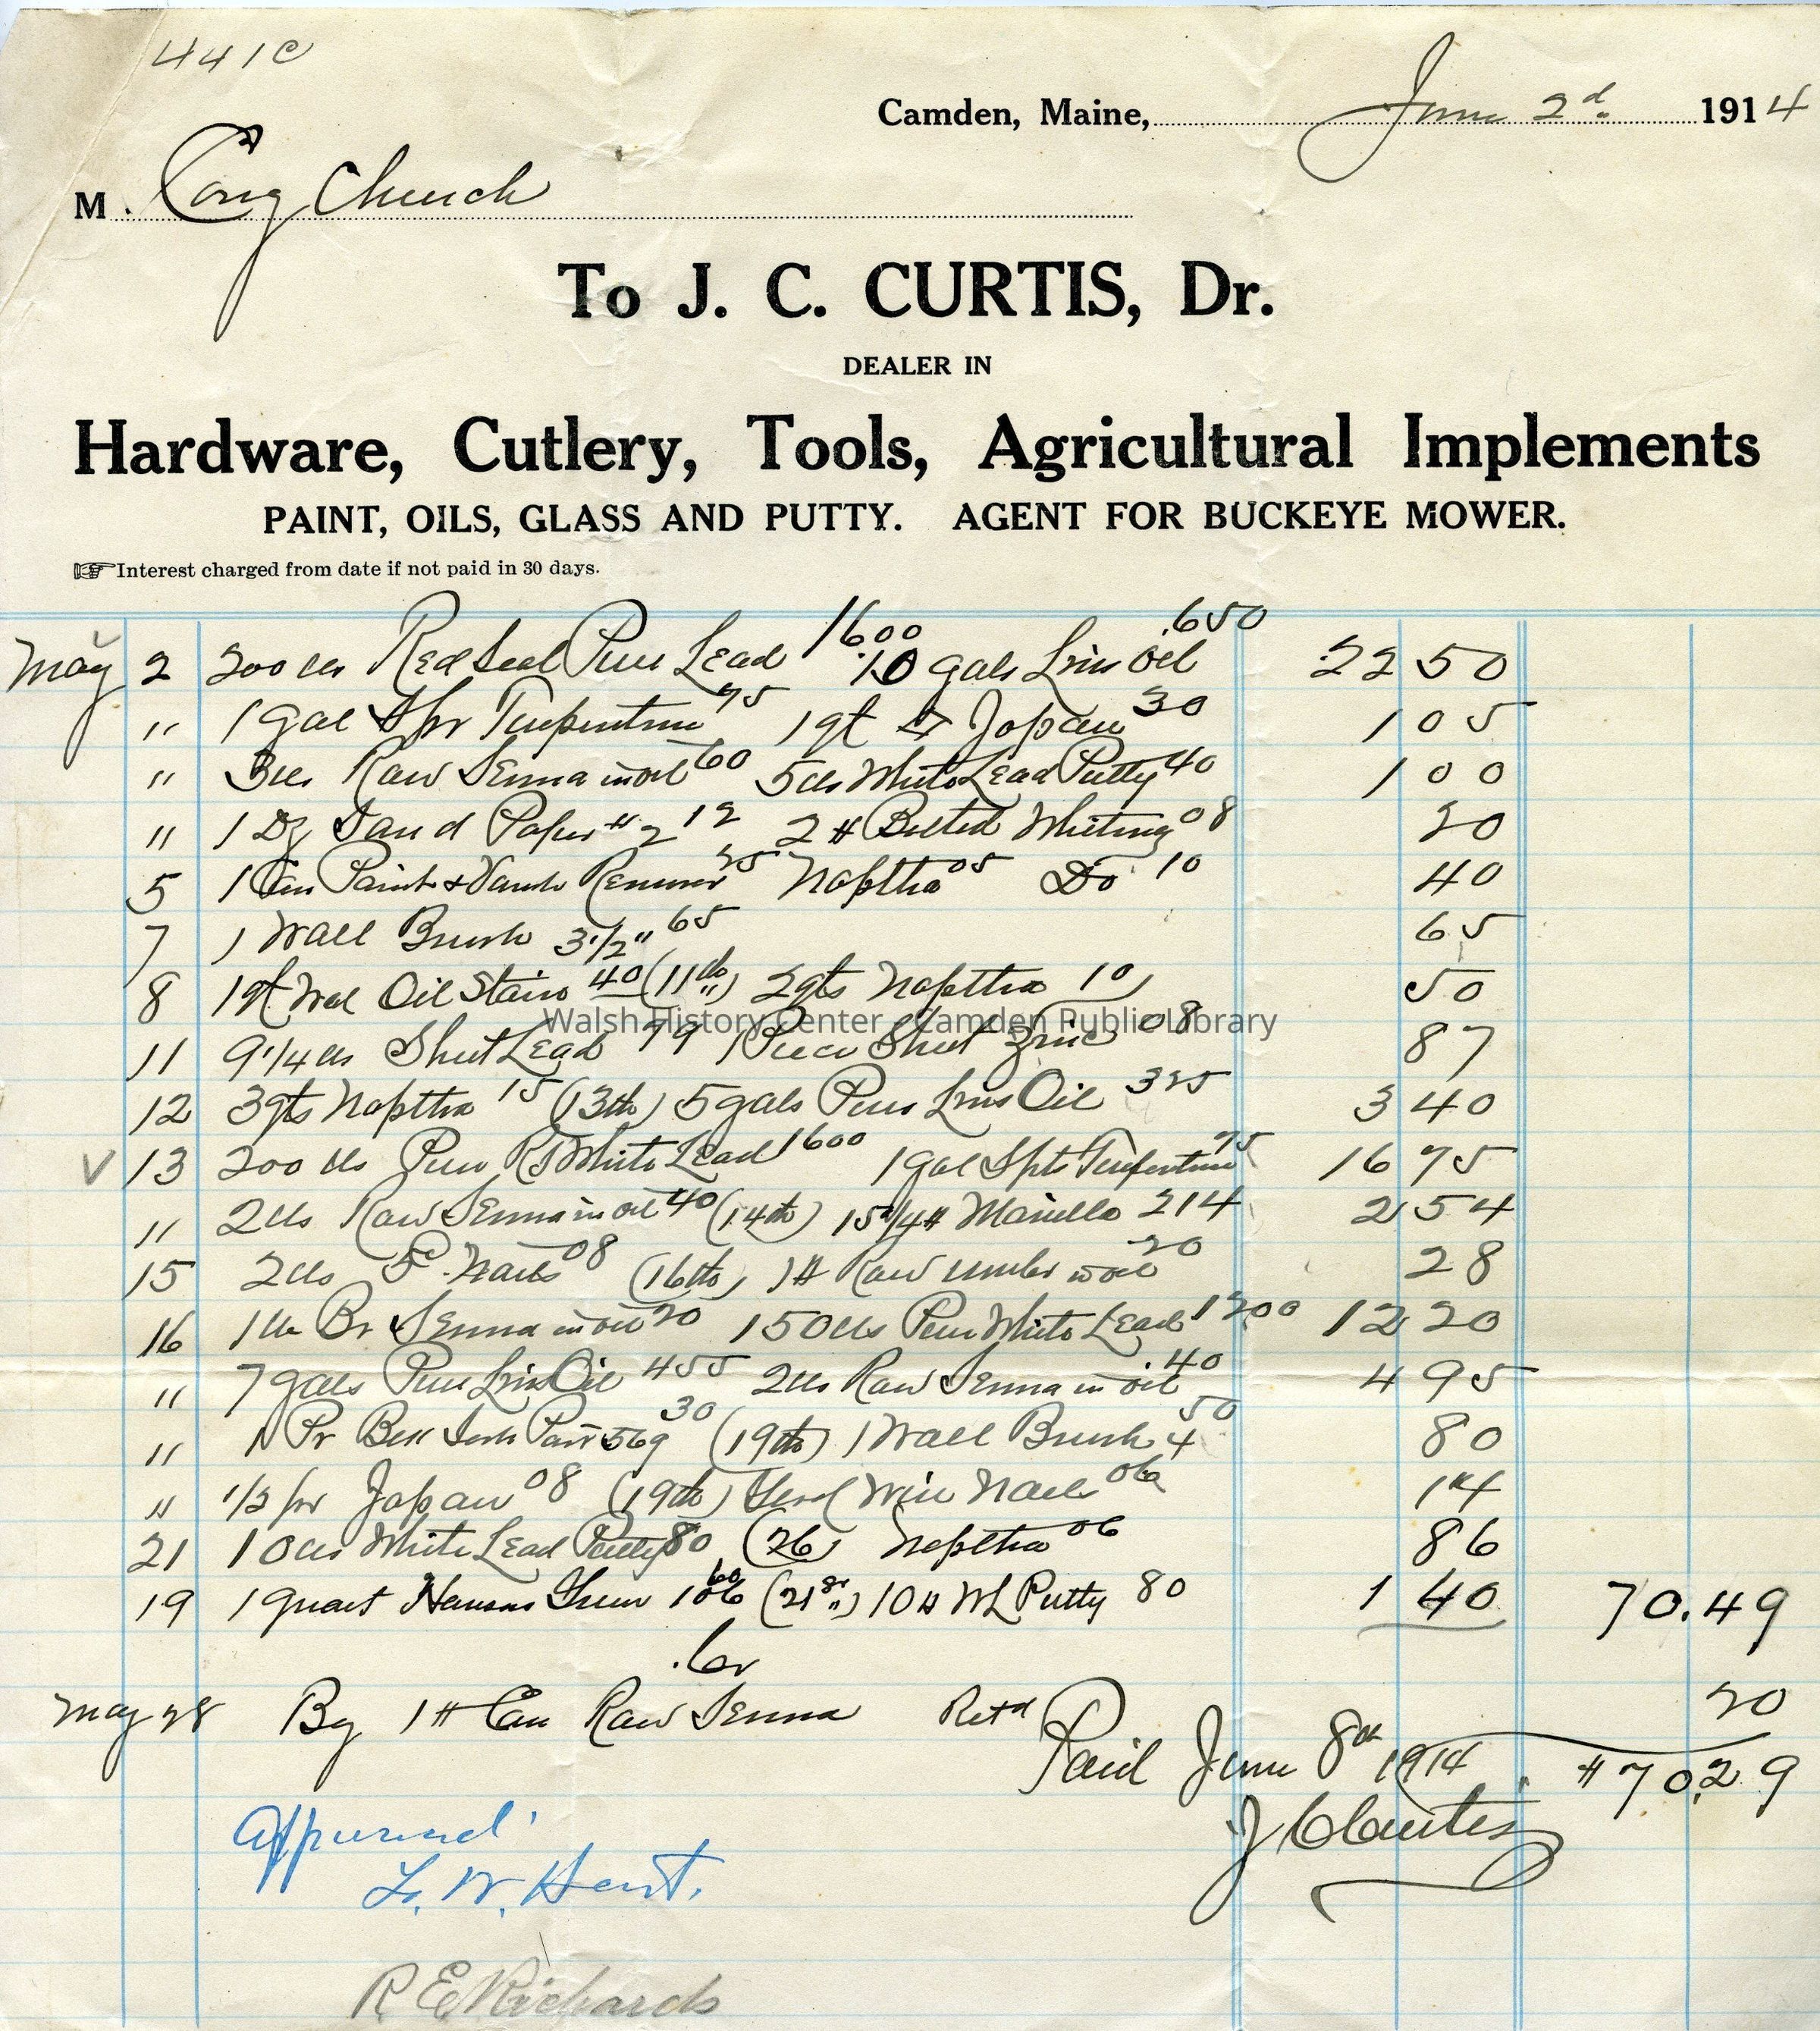 441C
Camden, Maine, June 2d. 1914
M. Cong Church
To J. C. CURTIS, Dr.
DEALER IN
Hardware, Cutlery, Tools, Agricultural Implements
PAINT, OILS, GLASS AND PUTTY. AGENT FOR BUCKEYE MOWER.
Interest charged from date if not paid in 30 days.
May 2 200 lbs Red Seal Pure Lead 16.00 10 gals Lins Oil 650 22 50
" 1 gal Spr Turpentine 75 1 qt Japan 30 1 05
" 3lbs Raw Sienna in oil 60 5lbs White Lead Putty 40 1 00
" 1 Dz Sand Paper # 2 12 2 # Bolted Whiting 08 20
5 1 Can Paint & Varnh Remover 25 Naptha 05 Do 10 40
7 1 Wall Brush 3 1/2" 65 65
8 1 qt Wal Oil Stain 40 (11th) 2 qts Naptha 10 50
Walsh History Center - Camden Public Library
11 9 1/4 lbs Sheet Lead 79 1 Piece Sheet Zinc 08 87
12 3 qts Naptha 15 (13th) 5 gals Pure Lins Oil 325 3 40
V 13 200 lbs Pure RS White Lead 1600 1 gal Spts Turpentine 75 16 75
" 2lbs Raw Sienna in oil 40 (14th) 15 1/4 # Manilla 214 2 54
15 2lbs 5 Nails 08 (16th) 1# Raw Umber in oil 20 28
16 1 lb Br Sienna in oil 20 150lbs Pure White Lead 1200 12 20
" 7 gals Pure Lins Oil 455 2lbs Raw Sienna in oil 40 4 95
" 1 Pr 569 30 (19th) 1 Wall Brush 4 50 80
" 1/2 Japan 08 (19th) Wire Nails 06 14
21 10lbs White Lead Putty 80 (26) Naptha 06 86
19 1 quart Green 60 (21st) 10 # WL Putty 80 1 40 70.49
.Cr
May 28 By 1 # Can Raw Sienna Retd 20
Paid June 8th 1914 $70.29
J C Curtis
Approved
L. W. Hart.
R E Richards